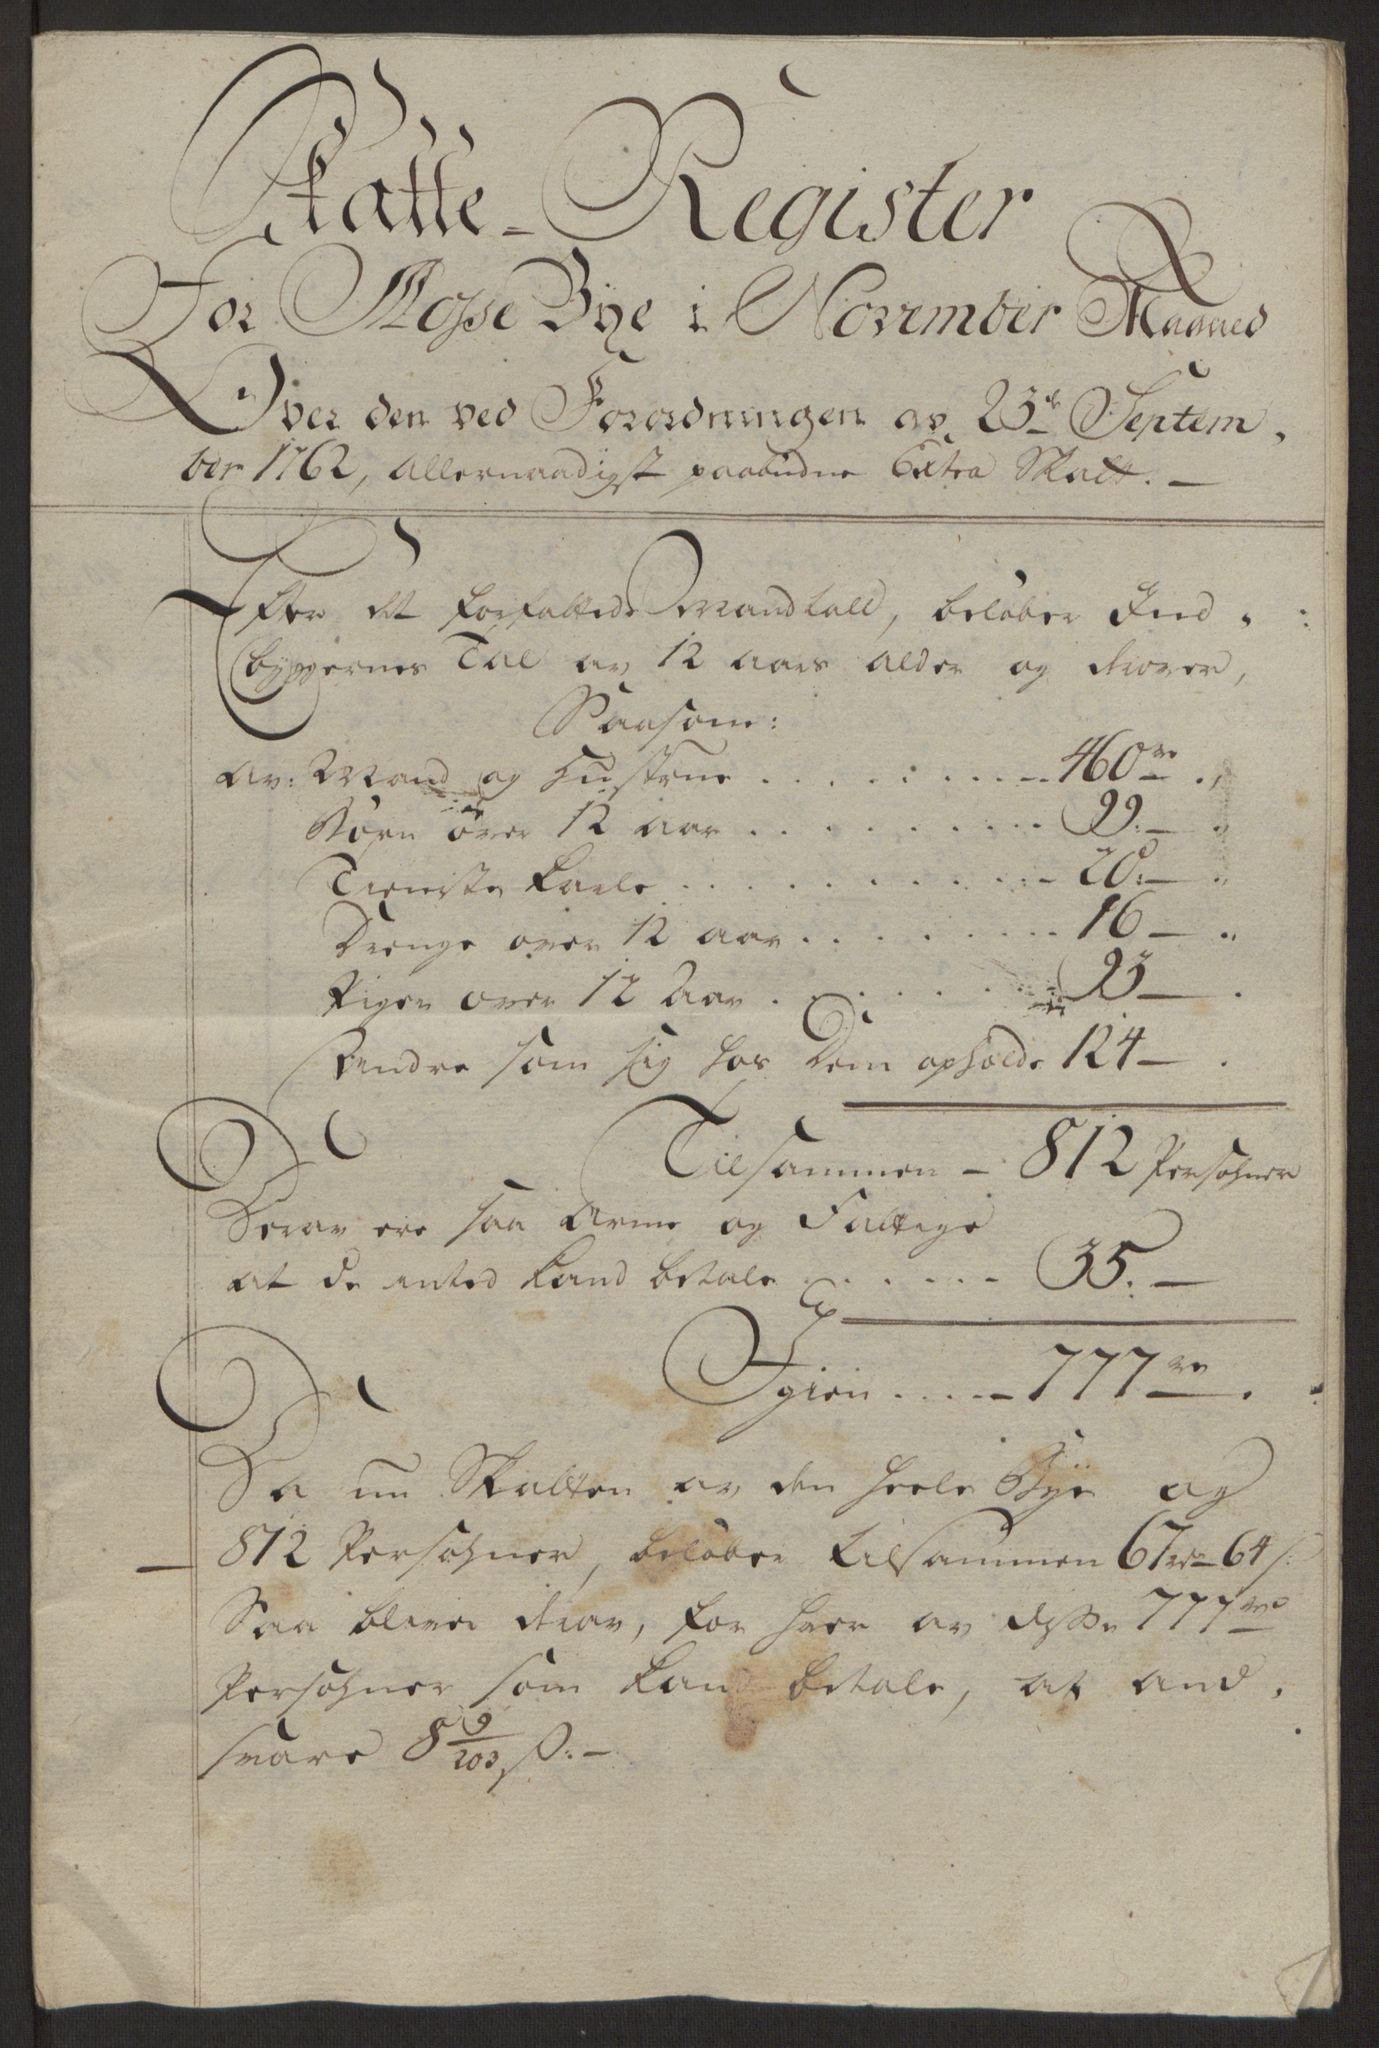 Skatte-Register
For Mosse Bye i November Maaned
Over den ved Forordningen av 23de Septem-
ber 1762, allernaadigst paabudne Extra Skatt.
Efter det forfattede Mandtall, beløber Ind-
byggernes Tal av 12 aars alder og derover,
Saasom:
Av: Mand og Hustrue . . . . . . . . . 460re
Børn over 12 aar . . . . . . . . . 99.
Tieniste Karle . . . . . . . . . . 20.
Drenge over 12 aar . . . . . . . . . 16
Piger over 12 Aar . . . . . . . . . 93
Andre som sig hos Dem opholde 124
Tilsammen - 812 Persohner
Derav ere saa Arme og Fattige
at de intet kand betale . . . . . . 35.
Igien . . . . 777re
Da nu Skatten av den heele Bye og
812 Persohner, beløber tilsammen 67rdr 64 s:
Saa bliver derav, for hver av disse 777re
Persohner som kand betale, at and-
svare 8 9/203 ß: